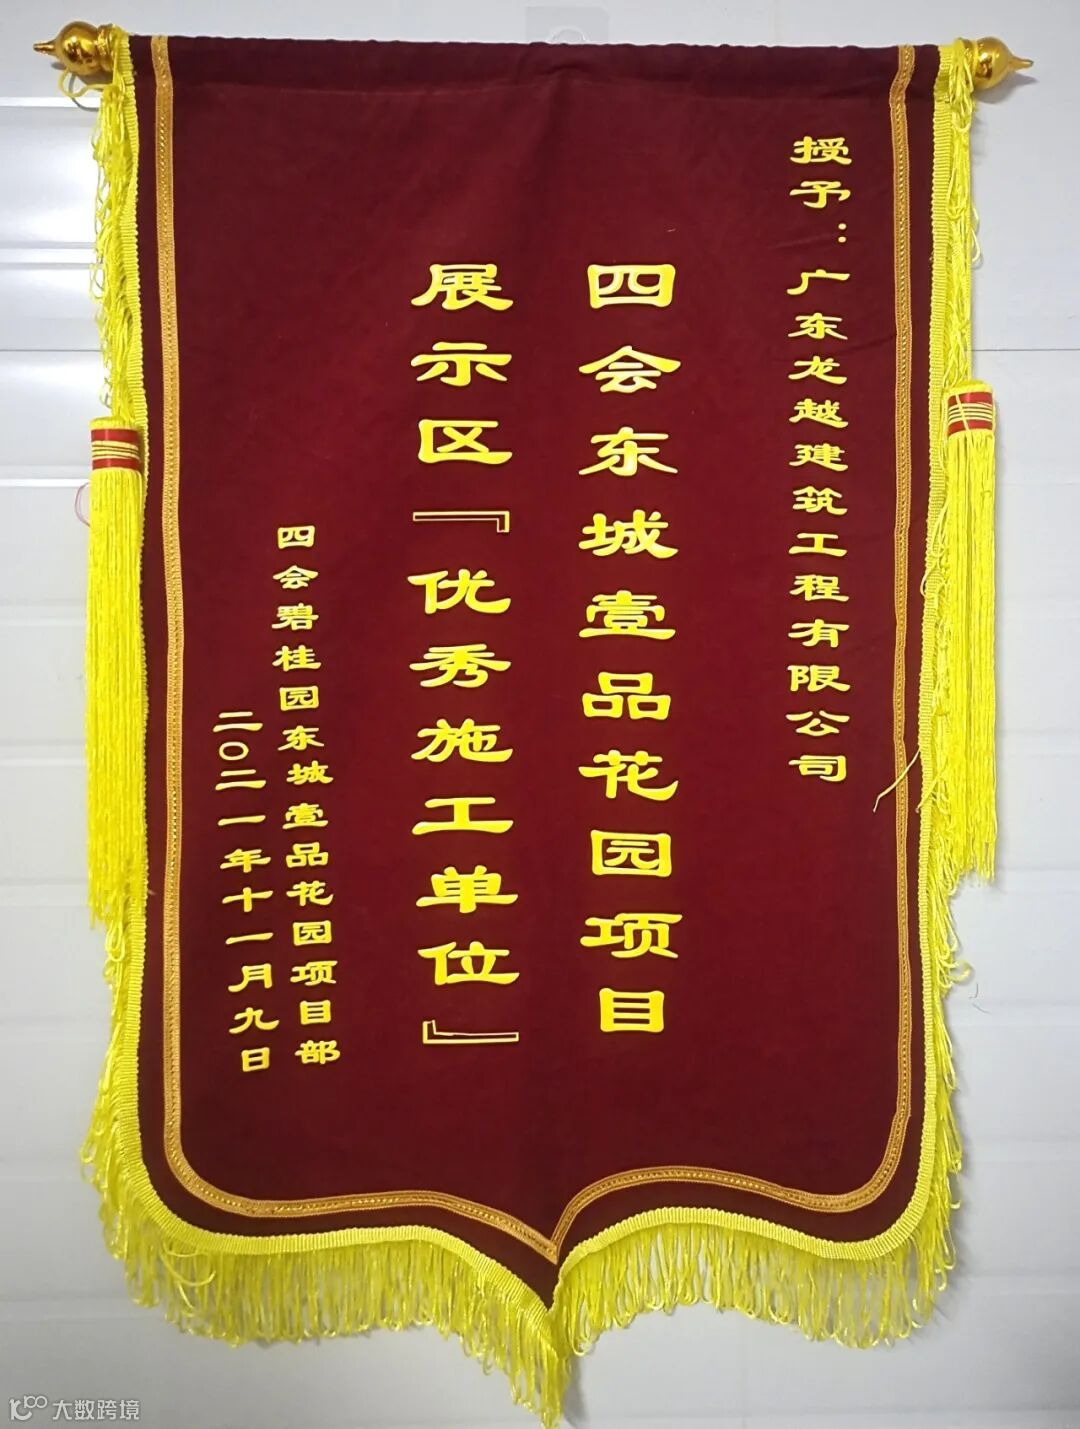 授予：广东龙越建筑工程有限公司
四会东城壹品花园项目
展示区『优秀施工单位』
四会碧桂园东城壹品花园项目部
二〇二一年十一月九日
大数跨境